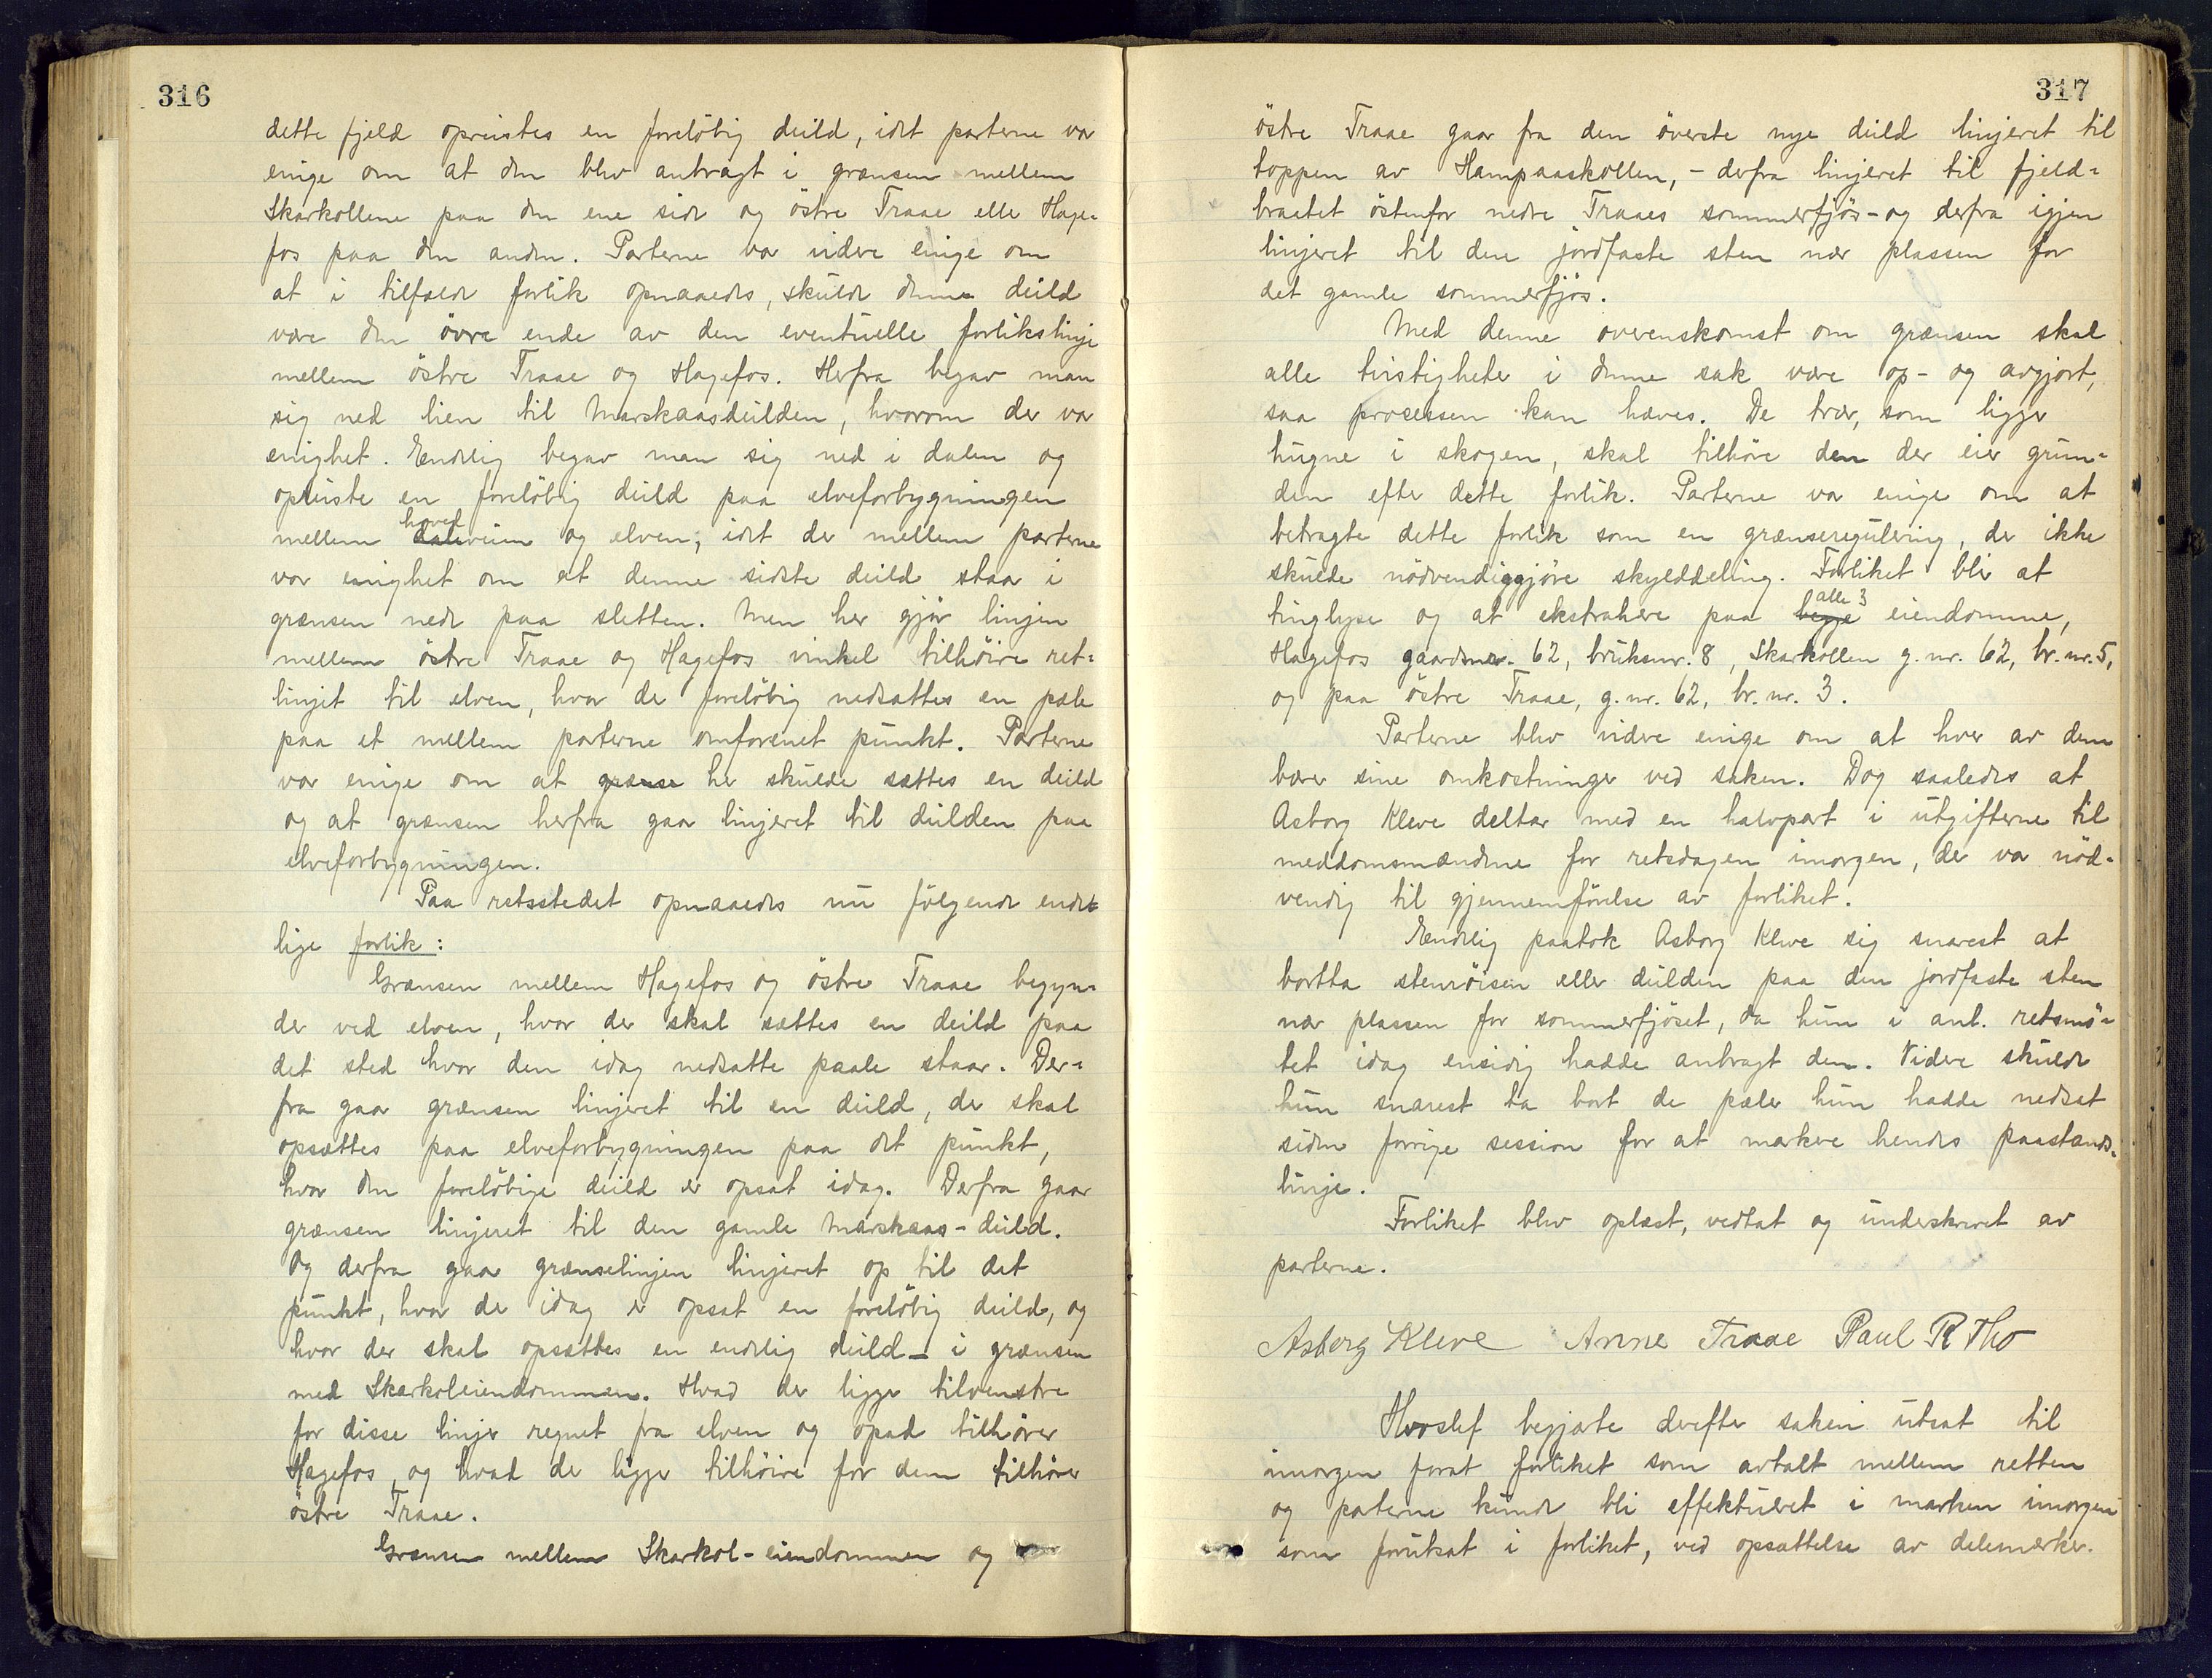 316
dette fjeld opreistes en foreløbig deild, idet parterne var
enige om at den blev anbragt i grænsen mellem
Skarkollene paa den ene side og østre Traae eller Hage-
fos paa den anden. Parterne var videre enige om
at i tilfælde forlik opnaaedes, skulde denne deild
være den øvre ende av den eventuelle forlikslinje
mellem østre Traae og Hagefos. Herfra begav man
sig ned lien til Marskaasdeilden, hvorom der var
enighet. Endelig begav man sig ned i dalen og
opreiste en foreløbig deild paa elveforbygningen
mellem hovedveien og elven, idet der mellem parterne
var enighet om at denne sidste deild staar i
grænsen nede paa sletten. Men her gjør linjen
mellem østre Traae og Hagefos vinkel tilhøire ret-
linjet til elven, hvor der foreløbig nedsattes en pæle
paa et mellem parterne omforenet punkt. Parterne
var enige om at grænse her skulde sættes en deild
og at grænsen herfra gaar linjeret til deilden paa
elveforbygningen.
Paa retsstedet opnaaedes nu følgende ende-
lige forlik:
Grænsen mellem Hagefos og østre Traae begyn-
der ved elven, hvor der skal sættes en deild paa
det sted hvor den idag nedsatte paale staar. Der-
fra gaar grænsen linjeret til en deild, der skal
opsættes paa elveforbygningen paa det punkt,
hvor den foreløbige deild er opsat idag. Derfra gaar
grænsen linjeret til den gamle Marskaas-deild.
Og derfra gaar grænselinjen linjeret op til det
punkt, hvor der idag er opsat en foreløbig deild, og
hvor der skal opsættes en endelig deild - i grænsen
med Skarkoleiendommen. Hvad der ligger tilvenstre
for disse linjer regnet fra elven og opad tilhører
Hagefos, og hvad der ligger tilhøire for dem tilhører
østre Traae.
Grænsen mellem Skarkol-eiendommen og
317
østre Traae gaar fra den øverste nye deild linjeret til
toppen av Hampaaskollen, - derfra linjeret til fjeld-
braatet østenfor nedre Traaes sommerfjøs - og derfra igjen
linjeret til den jordfaste sten nær plassen for
det gamle sommerfjøs.
Med denne overenskomst om grænsen skal
alle tvistigheter i denne sak være op- og avgjort,
saa processen kan hæves. De trær, som ligger
hugne i skogen, skal tilhøre den der eier grun-
den efter dette forlik. Parterne var enige om at
betragte dette forlik som en grænseregulering, der ikke
skulde nødvendiggjøre skylddeling. Forliket blir at
tinglyse og at ekstrahere paa begge alle 3 eiendomme,
Hagefos gaardsnr. 62, bruksnr. 8, Skarkollen g.nr. 62, br.nr. 5,
og paa østre Traae, g.nr. 62, br.nr. 3.
Parterne blev videre enige om at hver av dem
bærer sine omkostninger ved saken. Dog saaledes at
Asborg Kleve deltar med en halvpart i utgifterne til
meddomsmændene for retsdagen imorgen, der var nød-
vendig til gjennemførelse av forliket.
Endelig paatok Asborg Kleve sig snarest at
bortta stenrøisen eller deilden paa den jordfaste sten
nær plassen for sommerfjøset, da hun i anl. retsmø-
tet idag ensidig hadde anbragt den. Videre skulde
hun snarest ta bort de pæler hun hadde nedsat
siden forrige session for at markere hendes paastands-
linje.
Forliket blev oplæst, vedtat og underskrevet av
parterne.
Asborg Kleve Anne Traae Paul R Tho
Horslef begjærte derefter saken utsat til
imorgen forat forliket som avtalt mellem retten
og parterne kunde bli effektueret i marken imorgen
som forutsat i forliket, ved opsættelse av delesmerker.